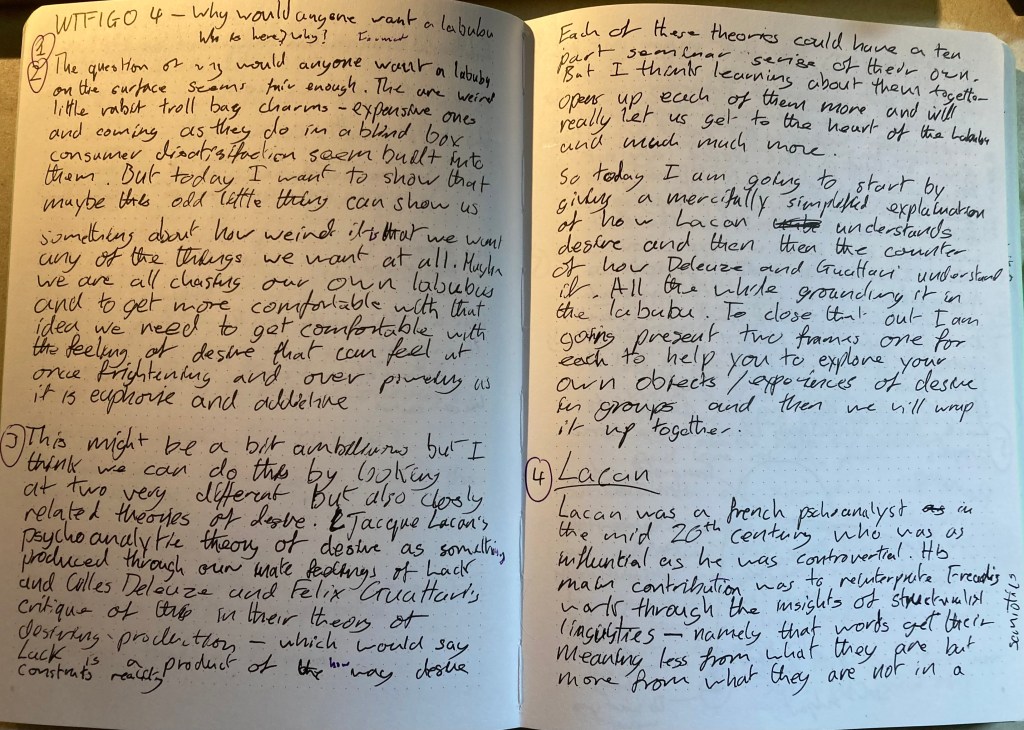 WTFIGO 4 – Why would anyone want a labubu
Who is here? Why? Format
1
2 The question of why would anyone want a labubu
on the surface seems fair enough. The are weird
little rabit troll bag charms – expensive ones
and coming as they do in a blind box
consumer disatisfaction seem built into
them. But today I want to show that
maybe this odd little thing can show us
something about how weird it is that we want
any of the things we want at all. Maybe
we are all chasing our own labubus
and to get more comfortable with that
idea we need to get comfortable with
the feeling of desire that can feel at
once frightening and over powering as
it is euphoric and addictive
3 This might be a bit ambitious but I
think we can do this by looking
at two very different but also closly
related theories of desire. Jacque Lacan's
psychoanalytic theory of desire as something
produced through our inate feelings of Lack
and Gilles Deleuze and Felix Guattari's
critique of this in their theory of
desiring-production – which would say
Lack is a product of how way desire
constructs reality
Each of these theories could have a ten
part seminar serise of their own.
But I think learning about them together
opens up each of them more and will
really let us get to the heart of the labubu
and much much more.
So today I am going to start by
giving a mercifully simplified explaination
of how Lacan understands
desire and then then the counter
of how Deleuze and Guattari understand
it. All the while grounding it in
the labubu. To close that out I am
going present two frames one for
each to help you to explore your
own objects / experiences of desire
in groups and then we will wrap
it up together.
4 Lacan
Lacan was a french pschoanalyst in
the mid 20th century who was as
influential as he was controvertial. His
main contribution was to reinterprate Freuds
work through the insights of structuralist
linguistics – namely that words get their
meaning less from what they are but
more from what they are not in a